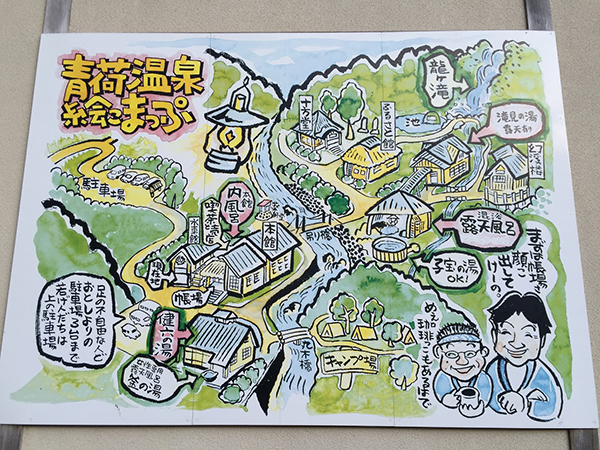 青荷温泉
絵こまっぷ
駐車場
龍ヶ滝
滝見の湯
露天有り
十方堂
ふるさと館
池
本館
内風呂
喫茶
水車館
本館
現在地
帳場
吊橋
混浴
露天風呂
子宝の湯
OK!
健六の湯
女性専用
露天風呂
釜の湯
丸木橋
キャンプ場
足の不自由なひと
おとしよりの
駐車場3台まで
若けんたちは
上の駐車場
まずは帳場さ
顔っこ
出して
けーの。
めぇ〜
珈琲っこもあるはで